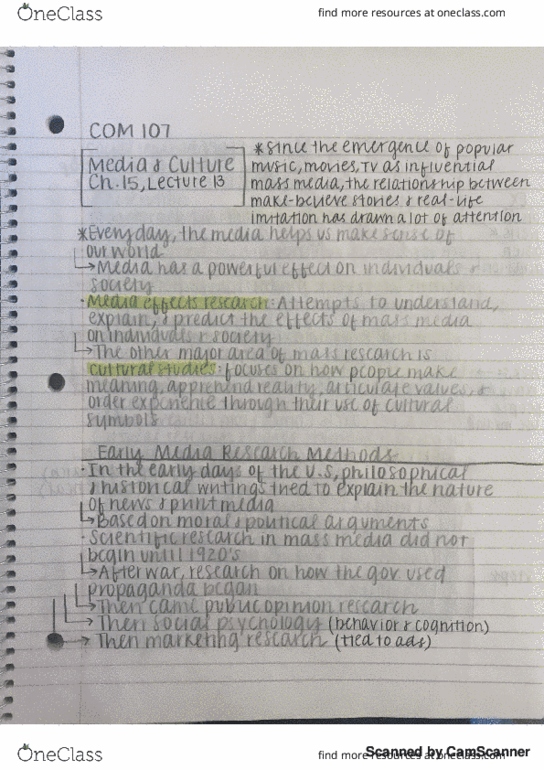 OneClass
find more resources at oneclass.com
COM 107
Media & Culture
Ch. 15, Lecture 13
*Since the emergence of popular
music, movies, TV as influential
mass media, the relationship between
make-believe stories & real-life
imitation has drawn a lot of attention
*Everyday, the media helps us make sense of
our world
↳Media has a powerful effect on individuals &
society
·Media effects research: Attempts to understand,
explain, & predict the effects of mass media
on individuals & society
↳The other major area of mass research is
cultural studies: focuses on how people make
meaning, apprehend reality, articulate values, &
order experience through their use of cultural
symbols
Early Media Research Methods
·In the early days of the U.S, philosophical
& historical writings tried to explain the nature
of news & print media
↳Based on moral & political arguments
·Scientific research in mass media did not
begin until 1920's
↳After war, research on how the gov used
propaganda began
↳Then came public opinion research
↳Then social psychology (behavior & cognition)
→Then marketing research (tied to ads)
OneClass
find more resources at oneclass.com
Scanned by CamScanner